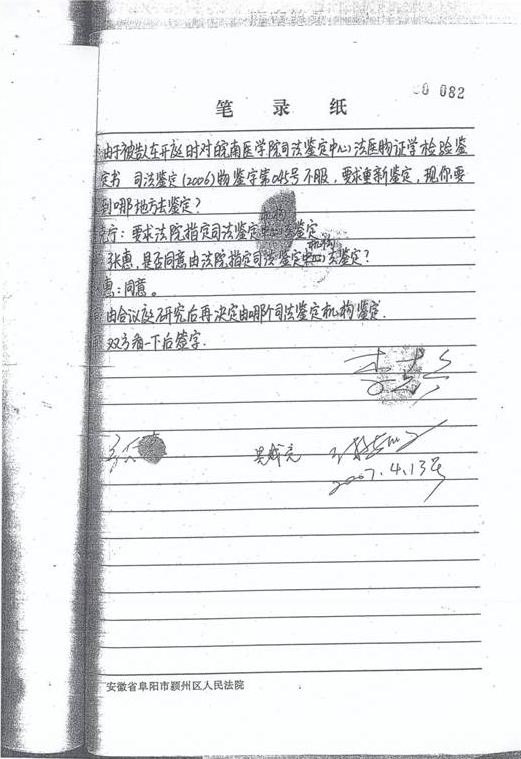 082
笔 录 纸
由于被告在开庭时对皖南医学院司法鉴定中心法医物证学检验鉴
定书 司法鉴定(2006)物鉴字第045号不服,要求重新鉴定,现你要
到哪地方去鉴定?
宁:要求法院指定司法鉴定机构去鉴定
张惠,是否同意由法院指定司法鉴定中心机构去鉴定?
惠:同意。
由合议庭研究后再决定由哪个司法鉴定机构鉴定.
双方看一下后签字.
2007.4.13号
安徽省阜阳市颍州区人民法院